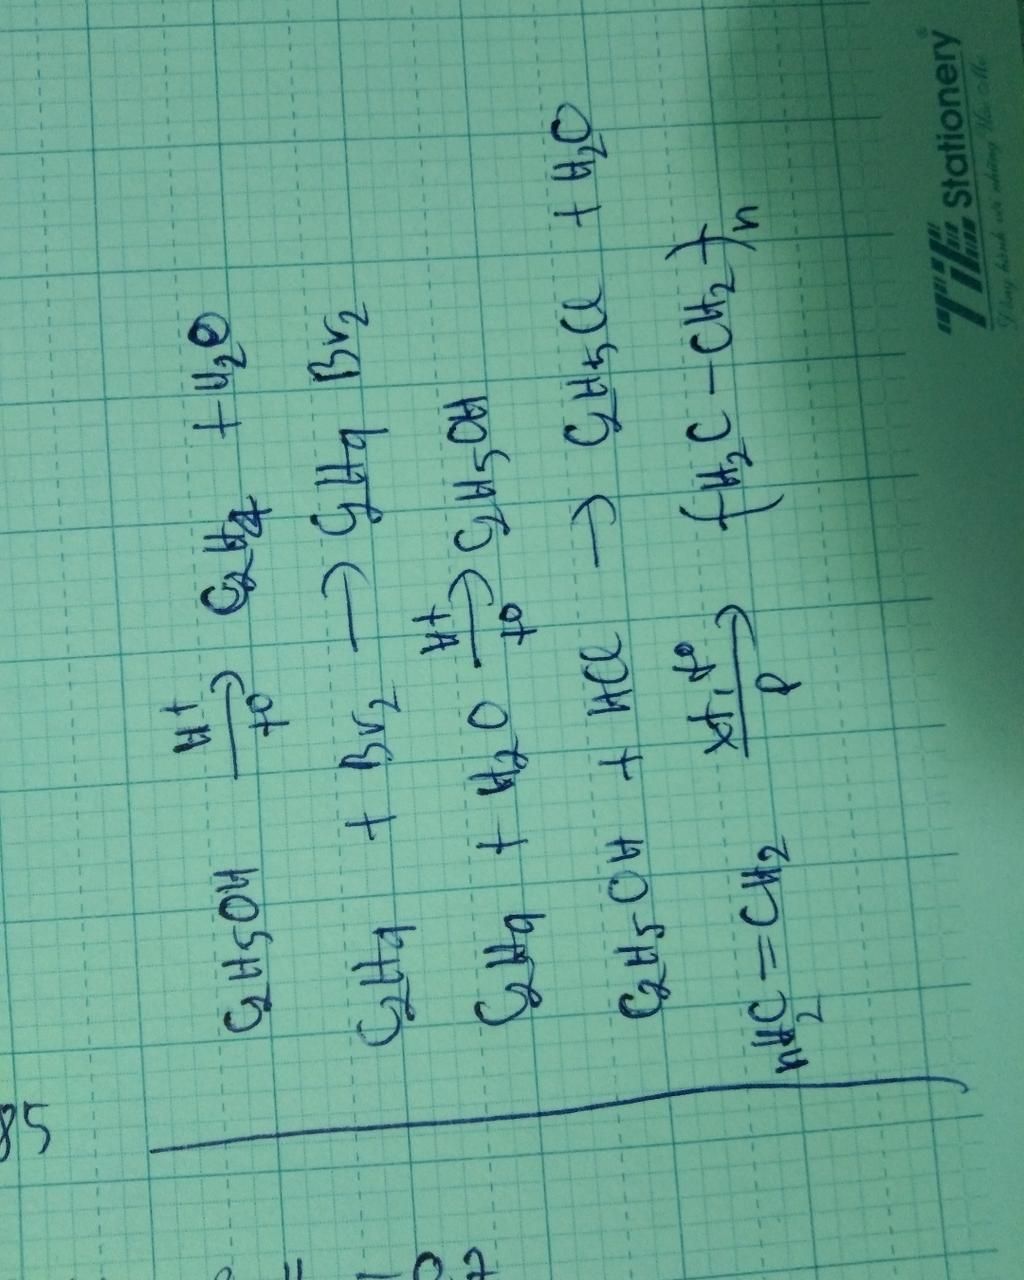 85
C₂H₅OH —H⁺/t⁰→ C₂H₄ + H₂O
C₂H₄ + Br₂ → C₂H₄Br₂
C₂H₄ + H₂O —H⁺/t⁰→ C₂H₅OH
C₂H₅OH + HCl → C₂H₅Cl + H₂O
nH₂C=CH₂ —xt, t⁰/p→ (H₂C-CH₂)ₙ
TiTi Stationery®